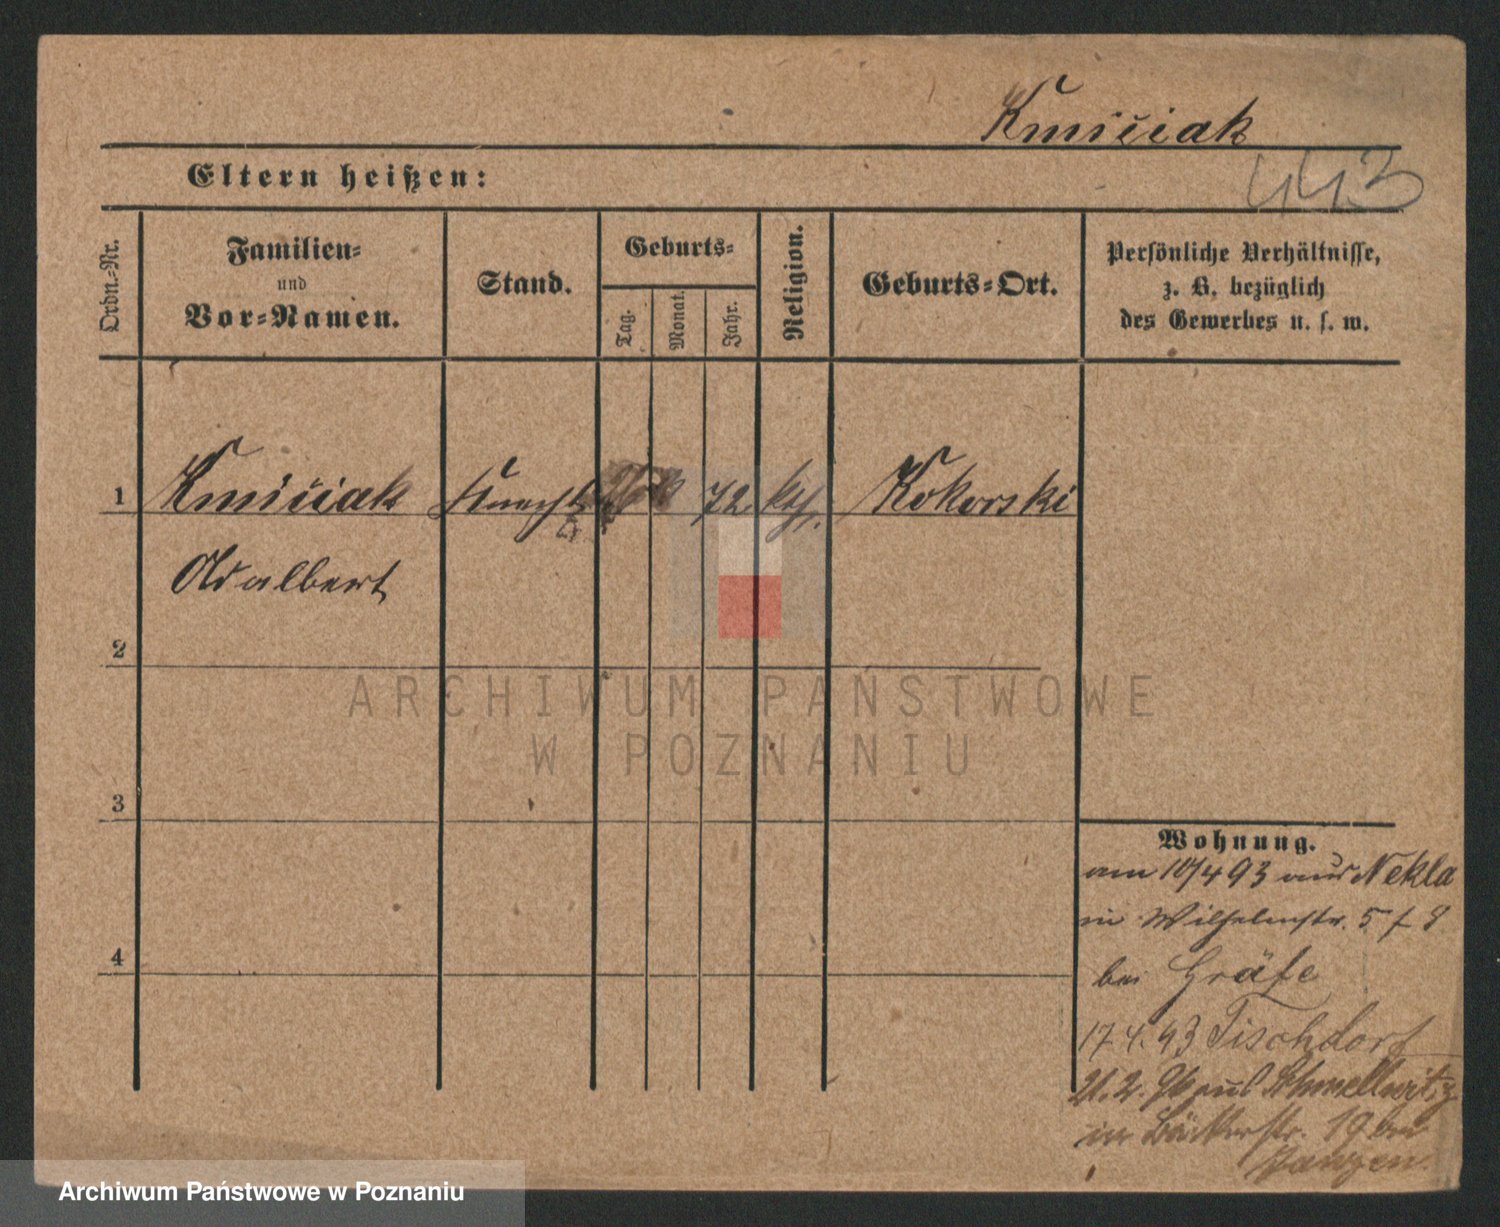 Kmiciak
443
Eltern heißen:
Ordn.-Nr.
Familien-
und
Vor-Namen.
Stand.
Geburts-
Tag.
Monat.
Jahr.
Religion.
Geburts-Ort.
Persönliche Verhältnisse,
z. B. bezüglich
des Gewerbes u. s. w.
1 Kmiciak Knecht 72. kth. Kokorski
Adalbert
2
3
4
Wohnung.
am 10/4 93 aus Nekla
in Wilhelmstr. 5 / 8
bei Gräfe
17 4. 93 Tischdorf
21. 2. 96 aus Schmellwitz
in Bäckerstr. 19 bei
ARCHIWUM PAŃSTWOWE
W POZNANIU
Archiwum Państwowe w Poznaniu